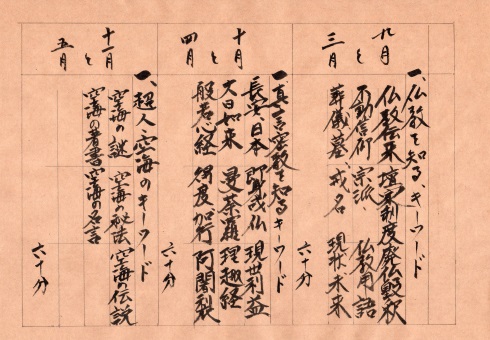 九月
と
三月
一、仏教を知る、キーワード
仏教伝来 檀家制度 廃仏毀釈
不動信仰 宗派 仏教用語
葬儀墓、戒名 現世未来
六十分
十月
と
四月
一、真言密教を知るキーワード
長安日本 即身成仏 現世利益
大日如来 曼荼羅 理趣経
般若心経 得度加行 阿闍梨
六十分
十一月
と
五月
一、超人空海のキーワード
空海の謎 空海の秘法 空海の伝説
空海の著書 空海の名言
六十分